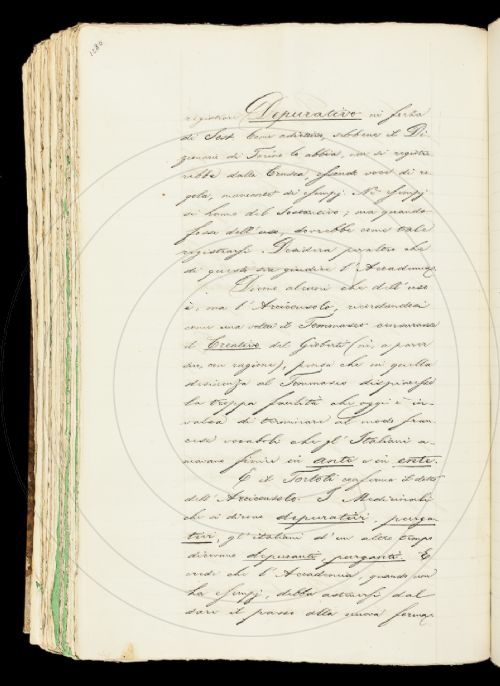 1280
registrare Depurativo in forza
di Sost. come addiettivo, sebbene il Di-
zionario di Torino lo abbia, non si registre-
rebbe dalla Crusca, essendo voce di re-
gola, mancante di esempj. Nè esempj
si hanno del Sostantivo; ma quando
fosse dell'uso, dovrebbe come tale
registrarsi. Desidera peraltro che
di questo sia giudice l'Accademia.
Dicono alcuni che dell'uso
è; ma l'Arciconsolo, ricordandosi
come una volta il Tommaseo censurasse
il Creativo del Gioberti (nè, a parer
suo, con ragione), pensa che in quella
desinenza al Tommaseo dispiacesse
la troppa facilità che oggi è in-
valsa di terminare al modo fran-
cese vocaboli che gl'Italiani a-
mavano finire in ante o in ente.
E il Tortoli conferma il detto
dell'Arciconsolo. I Medicinali
che si dicono depurativi, purga-
tivi, gl'italiani d'un altro tempo
dicevano depuranti, purganti. E
crede che l'Accademia, quando non
ha esempj, debba astenersi dal
dare il passo alla nuova forma,